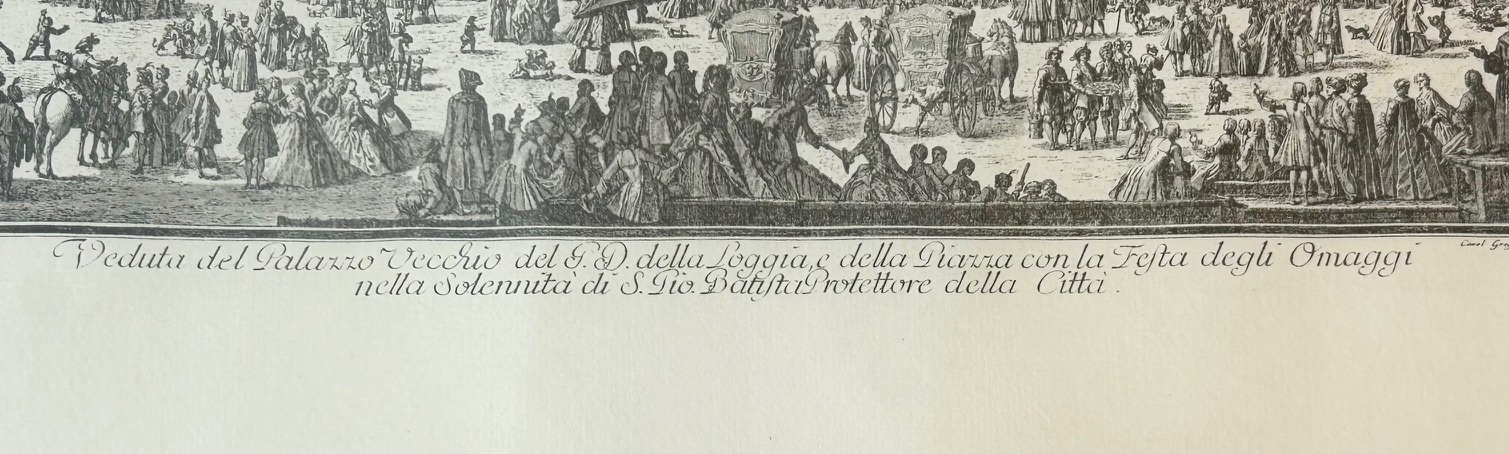 Veduta del Palazzo Vecchio del G. D. della Loggia, e della Piazza con la Festa degli Omaggi
nella Solennita di S. Gio. Batista Protettore della Città.
Carol